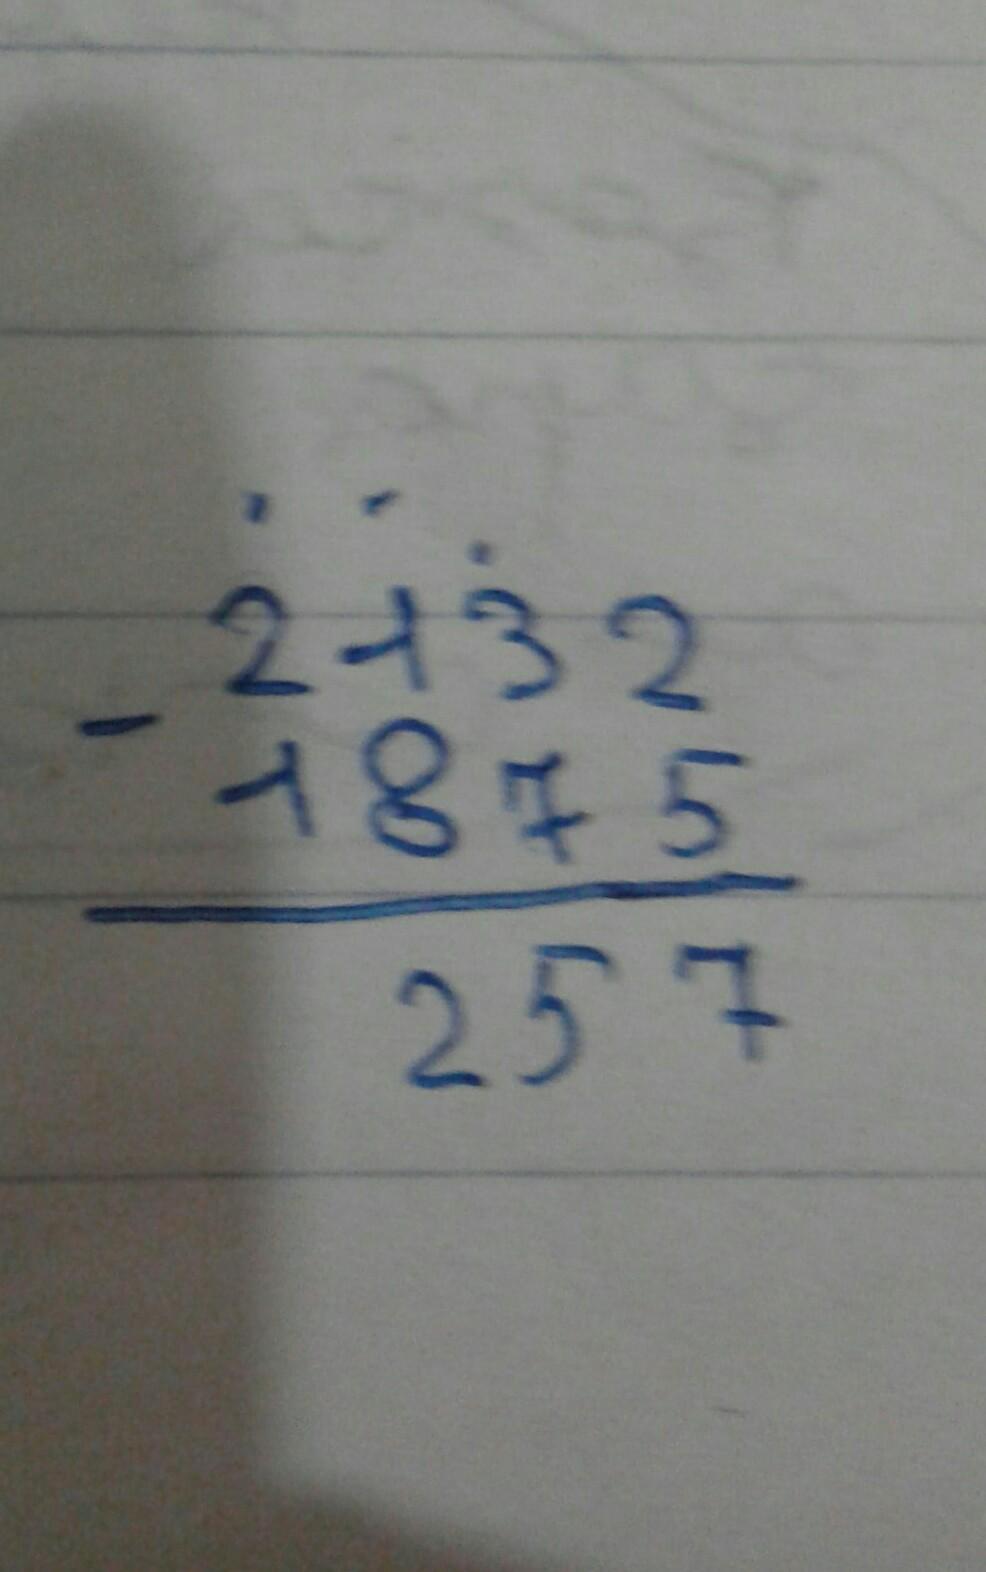 2132
- 1875
257